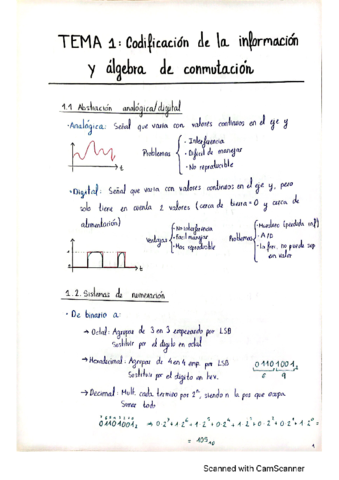 TEMA 1: Codificación de la información
y álgebra de conmutación
1.1 Abstración analógica/digital
· Analógica: Señal que varia con valores continuos en el eje y
Problemas
- Interferencia
- Dificil de manejar
- No reproducible
t
· Digital: Señal que varia con valores continuos en el eje y, pero
solo tiene en cuenta 2 valores (cerca de tierra = 0 y cerca de
alimentación)
Ventajas
- No interferencia
- Facil manejar
- Mas reproducible
Problemas
- Muestreo (perdida inf)
- A/D
- La func. no puede sup
un valor
t
1.2. Sistemas de numeración
· De binario a:
→ Octal: Agrupar de 3 en 3 empezando por LSB
Sustituir por el digito en octal
→ Hexadecimal: Agrupar de 4 en 4 emp. por LSB
Sustituir por el digito en hex.
0110 1001
6 9
→ Decimal: Mult. cada termino por 2ⁿ, siendo n la pos que ocupa
Sumar todo
01101001₂ → 0·2⁷+1·2⁶+1·2⁵+0·2⁴+1·2³+0·2²+0·2¹+1·2⁰=
= 105₁₀
Scanned with CamScanner